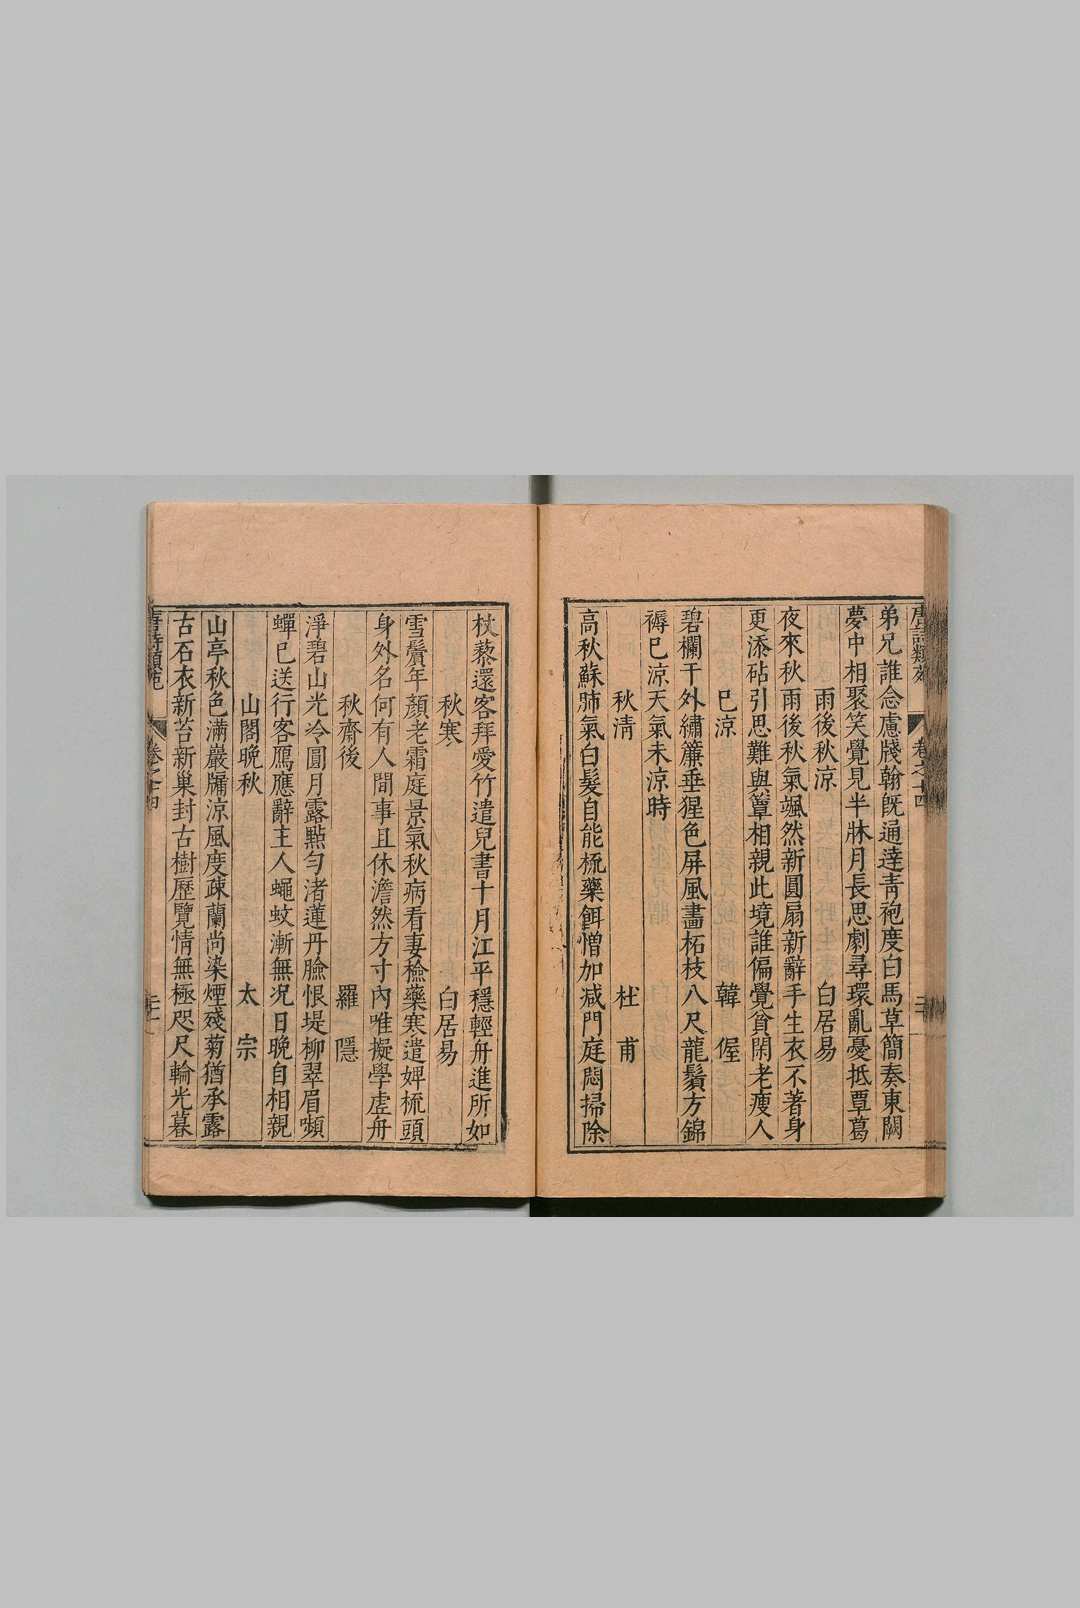 唐詩類苑 卷之十四
弟兄誰念慮牋翰旣通達靑袍度白馬草簡奏東闕
夢中相聚笑覺見半牀月長思劇尋環亂憂抵覃葛
雨後秋涼 白居易
夜來秋雨後秋氣颯然新圓扇新辭手生衣不著身
更添砧引思難與簟相親此境誰偏覺貧閑老瘦人
已涼 韓偓
碧欄干外繡簾垂猩色屏風畫柘枝八尺龍鬚方錦
褥已涼天氣未涼時
秋淸 杜甫
高秋蘇肺氣白髮自能梳藥餌憎加减門庭悶掃除
杖藜還客拜愛竹遣兒書十月江平穩輕舟進所如
秋寒 白居易
雪鬢年顏老霜庭景氣秋病看妻檢藥寒遣婢梳頭
身外名何有人間事且休澹然方寸內唯擬學虛舟
秋齋後 羅隱
淨碧山光冷圓月露㸃勻渚蓮丹臉恨堤柳翠眉嚬
蟬已送行客鴈應辭主人蠅蚊漸無况日晚自相親
山閣晚秋 太宗
山亭秋色滿巖牖涼風度疎蘭尚染煙殘菊猶承露
古石衣新苔新巢封古樹歷覽情無極咫尺輪光暮
唐詩類苑 卷之十四